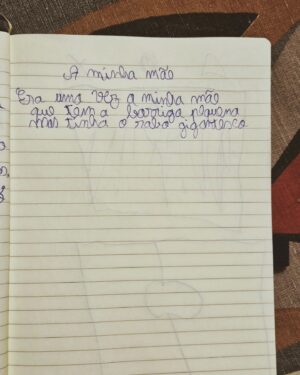 A minha mãe
Era uma vez a minha mãe
que tem a barriga pequena
mas tinha o rabo gigantesco